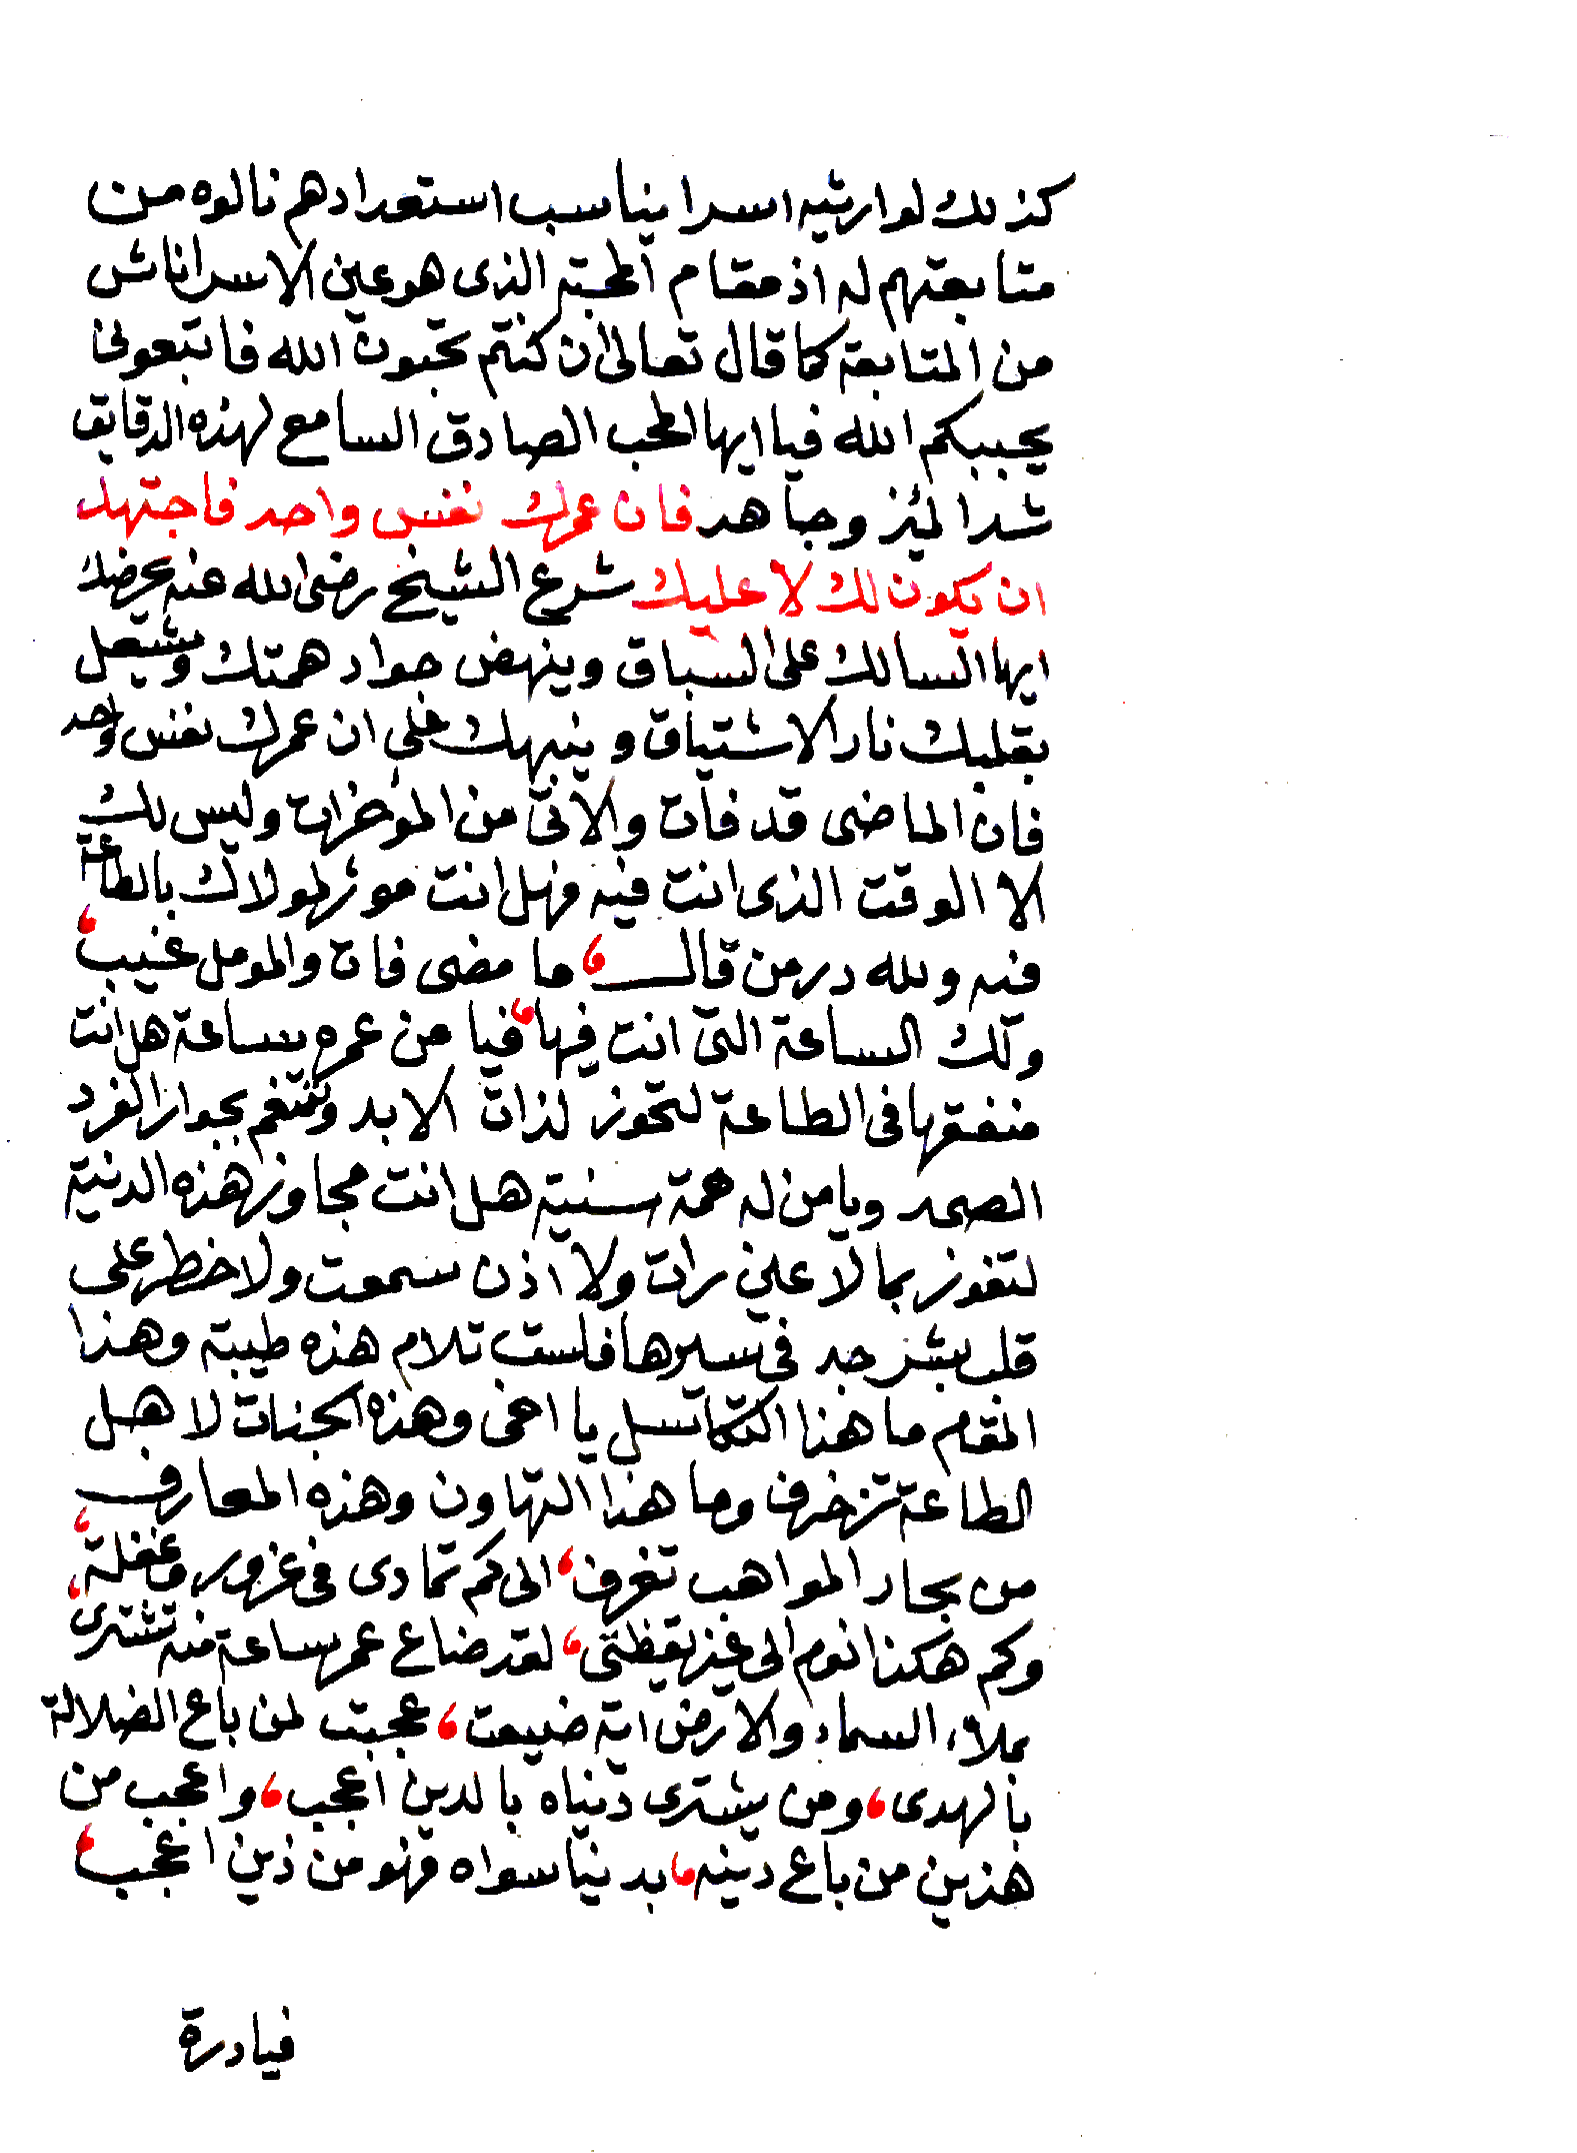 كذلك لوارثيه اسرا يناسب استعدادهم نالوه من
متابعتهم له اذ مقام المحبة الذى هو عين الاسرا ناش
من المتابعة كما قال تعالى ان كنتم تحبون الله فاتبعونى
يحببكم الله فيا ايها المحب الصادق السامع لهذه الدقايق
شد الميزر وجاهد فان عمرك نفس واحد فاجتهد
ان يكون لك لا عليك شرع الشيخ رضى الله عنه يحرضك
ايها السالك على السباق وينهض جواد همتك ويشعل
بقلبك نار الاشتياق وينبهك على ان عمرك نفس واحد
فان الماضى قد فات والاتى من المؤخرات وليس لك
الا الوقت الذى انت فيه فهل انت موثر لمولاك بالطاعة
فيه ولله در من قال ، ما مضى فات والمومل غيب ،
ولك الساعة التى انت فيها ، فيا من عمره ساعة هل انت
منفقها فى الطاعة لتحوز لذات الابد وتتنعم بجوار الفرد
الصمد ويا من له همة سنية هل انت مجاوز هذه الدنية
لتفوز بما لا عين رات ولا اذن سمعت ولا خطر على
قلب بشر جد فى سيرها فلست تلام هذه طيبة وهذا
المقام ما هذا التكاسل يا اخى وهذه الجنات لاهل
الطاعة تزخرف وما هذا التهاون وهذه المعارف
من بحار المواهب تغرف ، الى كم تمادى فى غرور وغفلة ،
وكم هكذا نوم الى غير يقظتى ، لقد ضاع عمر ساعة منه تشترى ،
بملاء السماء والارض اية ضيعت ، عجبت لمن باع الضلالة
بالهدى ، ومن يشترى دنياه بالدين اعجب ، واعجب من
هذين من باع دينه ، بدنيا سواه فهو من ذين اعجب ،
فيادرة